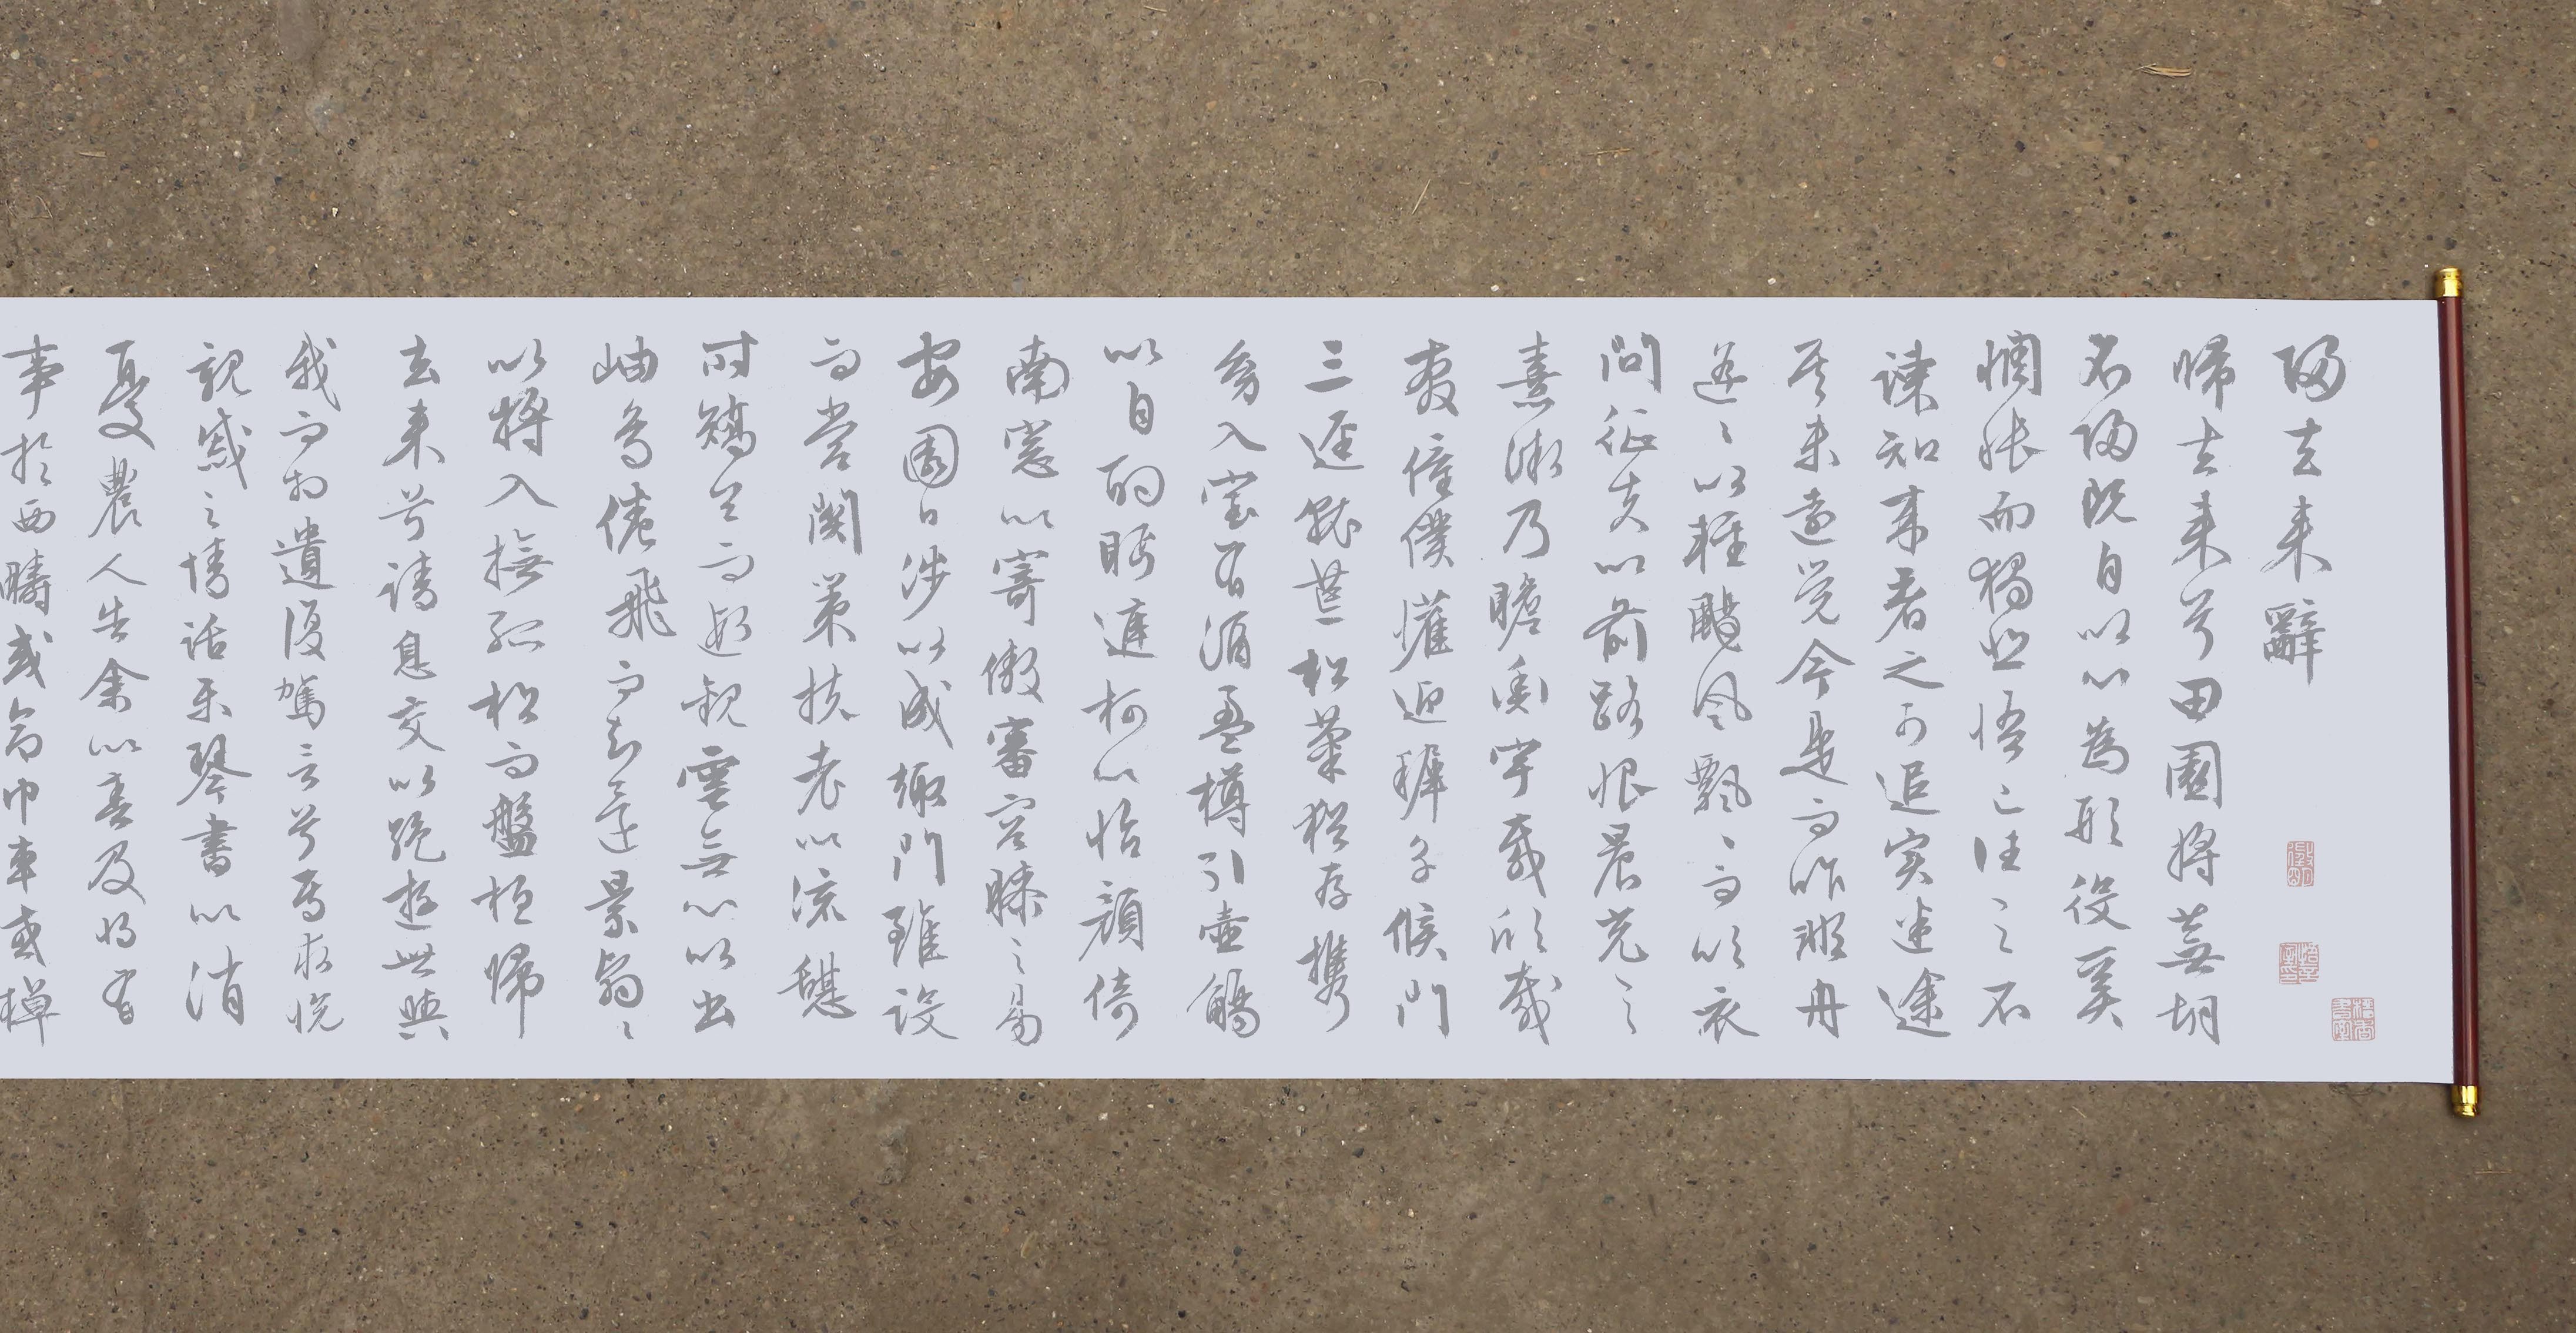 歸去来辭
歸去来兮田園將蕪胡
不歸既自以心為形役奚
惆悵而獨悲悟已往之不
諫知来者之可追实迷途
其未遠覺今是而昨非舟
遥〻以輕颺風飄〻而吹衣
問征夫以前路恨晨光之
熹微乃瞻衡宇載欣載
奔僮僕懽迎稚子候門
三逕就荒松菊猶存攜
幼入室有酒盈樽引壺觴
以自酌眄庭柯以怡顏倚
南窓以寄傲審容膝之易
安園日涉以成趣門雖設
而常關策扶老以流憩
時矯首而遐觀雲無心以出
岫鳥倦飛而知還景翳〻
以將入撫孤松而盤桓歸
去来兮請息交以絶游世與
我而相遺復駕言兮焉求悦
親戚之情話樂琴書以消
憂農人告余以春及將有
事於西疇或命巾車或棹